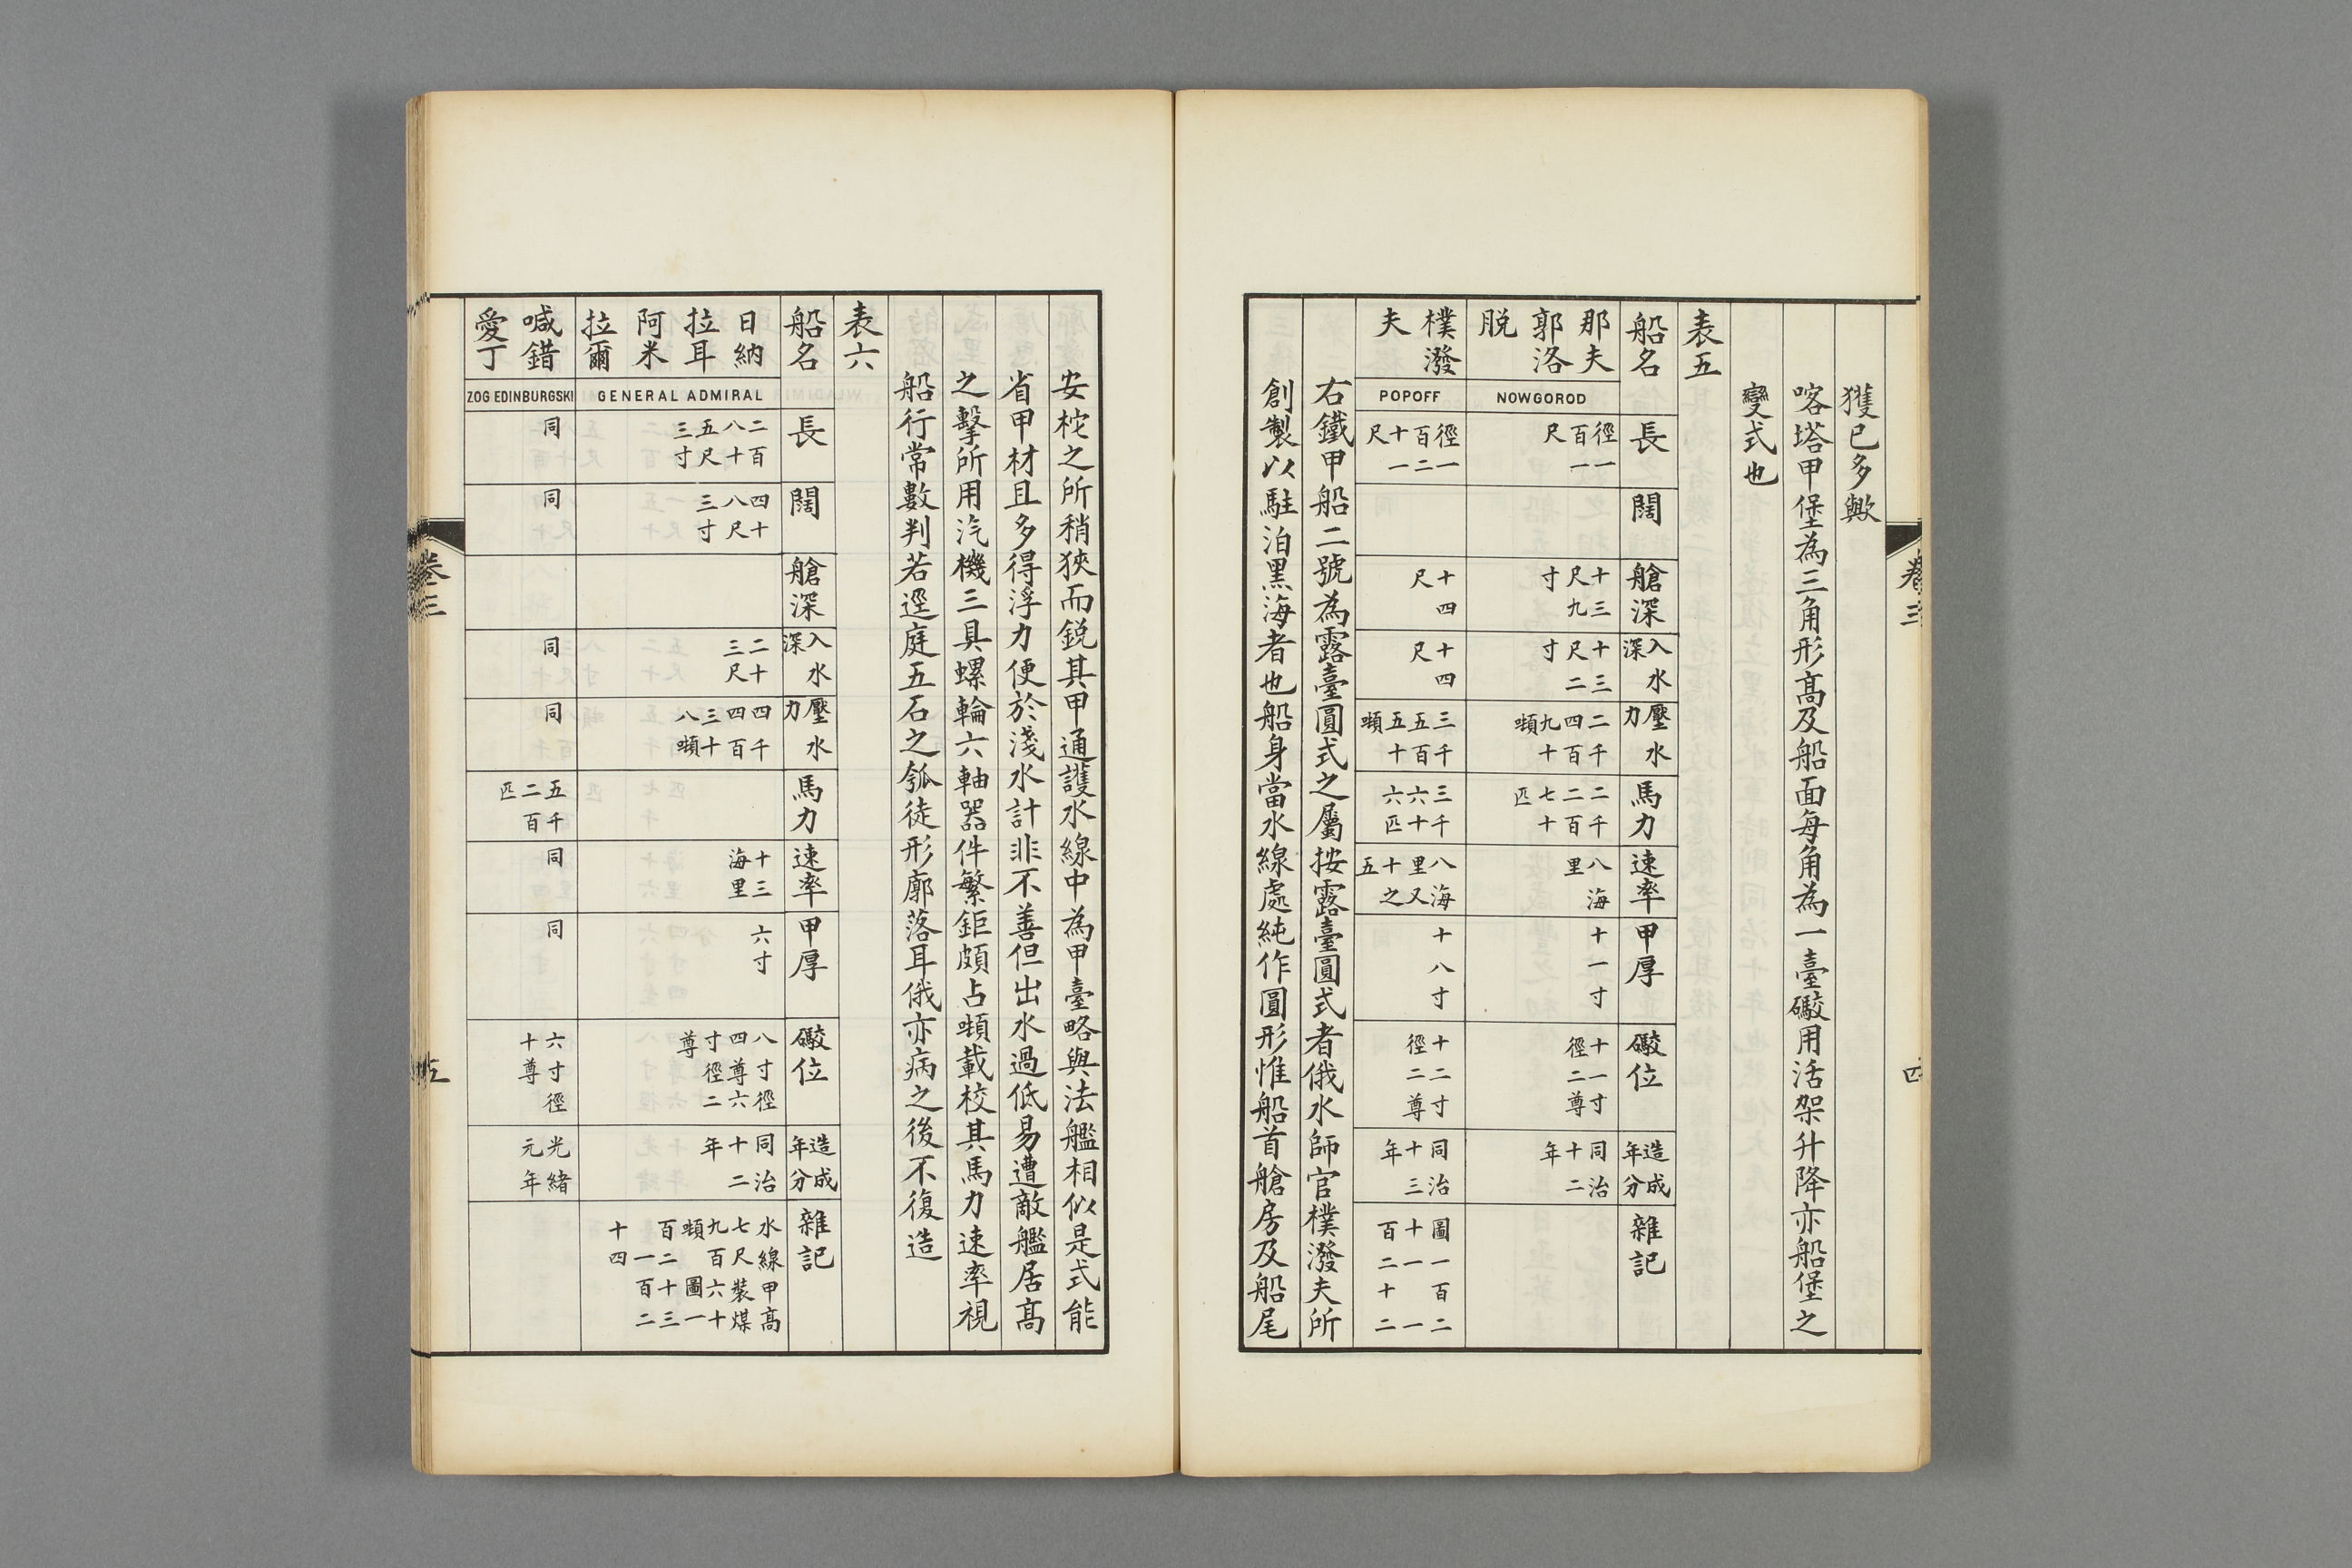 獲已多歟
喀塔甲堡為三角形高及船面每角為一臺礮用活架升降亦船堡之
變式也
表五
船名
長
闊
艙深
入水深
壓水力
馬力
速率
甲厚
礮位
造成年分
雜記
那夫郭洛脱
NOWGOROD
徑一百一尺
十三尺九寸
十三尺二寸
二千四百九十噸
二千二百七十匹
八海里
十一寸
十一寸徑二尊
同治十二年
樸潑夫
POPOFF
徑一百二十一尺
十四尺
十四尺
三千五百五十噸
三千六十六匹
八海里又十之五
十八寸
十二寸徑二尊
同治十三年
圖一百二十一一百二十二
右鐵甲船二號為露臺圓式之屬按露臺圓式者俄水師官樸潑夫所
創製以駐泊黑海者也船身當水線處純作圓形惟船首艙房及船尾
卷三
四
安柁之所稍狹而銳其甲通護水線中為甲臺略與法艦相似是式能
省甲材且多得浮力便於淺水計非不善但出水過低易遭敵艦居高
之擊所用汽機三具螺輪六軸器件繁鉅頗占噸載校其馬力速率視
船行常數判若逕庭五石之瓠徒形廓落耳俄亦病之後不復造
表六
船名
長
闊
艙深
入水深
壓水力
馬力
速率
甲厚
礮位
造成年分
雜記
日納拉耳阿米拉爾
GENERAL ADMIRAL
二百八十五尺三寸
四十八尺三寸
二十三尺
四千四百三十八噸
十三海里
六寸
八寸徑四尊六寸徑二尊
同治十二年
水線甲高七尺裝煤九百六十噸圖一百二十三一百二十四
喊錯愛丁
ZOG EDINBURGSKI
同
同
同
同
五千二百匹
同
同
六寸徑十尊
光緒元年
卷三
五